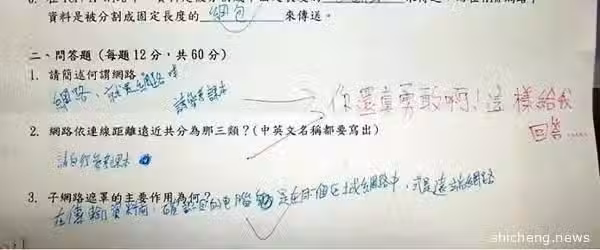 資料是被分割成固定長度的 網包 來傳送。
二、問答題(每題12分,共60分)
1. 請簡述何謂網路
網路、就是網路 請參考課本
你還真勇敢啊!這樣給我
回答......
2. 網路依連線距離遠近共分為那三類?(中英文名稱都要寫出)
請自行參考課本
3. 子網路遮罩的主要作用為何?
在傳輸資料前,確認您的電腦 是在同一個區域網路中,或是遠端網路
shicheng.news